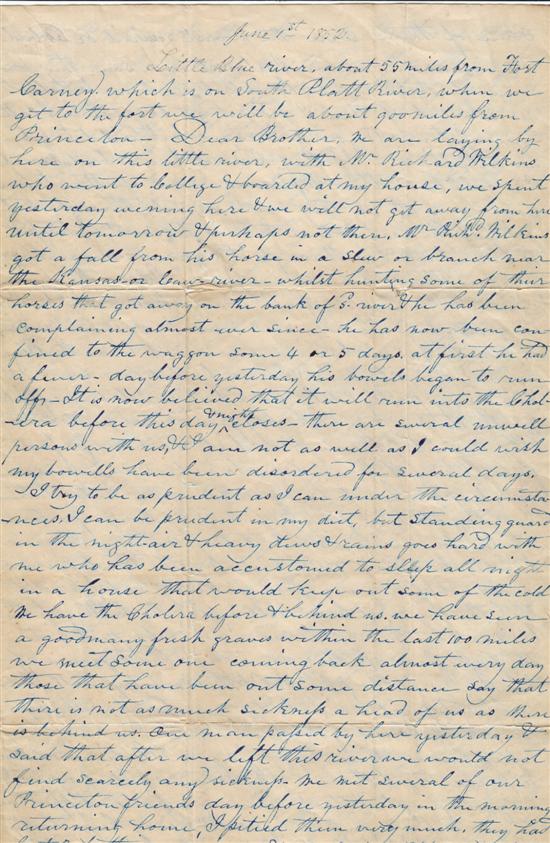 June 1st 1852
Little Blue river, about 55 miles from Fort
Carney, which is on South Platt River, when we
get to the fort we will be about 900 miles from
Princeton - Dear Brother, we are laying by
here on this little river, with Mr Richard Wilkins
who went to College & boarded at my house, we spent
yesterday evening here & we will not get away from here
until tomorrow & perhaps not then, Mr Richd. Wilkins
got a fall from his horse in a slew or branch near
the Kansas or river - whilst hunting some of their
horses that got away on the bank of river & he has been
complaining almost ever since - he has now been con
fined to the waggon some 4 or 5 days. at first he had
a fever - day before yesterday his bowels began to run
off - It is now believed that it will run into the Chol-
era before this day & night closes - there are several unwell
persons with us, & I am not as well as I could wish
my bowells have been disordered for several days,
I try to be as prudent as I can under the circumsta
-nces. I can be prudent in my diet, but standing guard
in the night air & heavy dews & rains goes hard with
me who has been accustomed to sleep all night
in a house that would keep out some of the cold
We have the Cholera before & behind us. we have seen
a good many fresh graves within the last 100 miles
we meet some one coming back almost every day
those that have been out some distance say that
there is not as much sickness a head of us as there
is behind us. One man passed by here yesterday &
said that after we left this river we would not
find scarcely any sickness - We met several of our
Princeton friends day before yesterday in the morning
returning home, I pitied them very much, they had